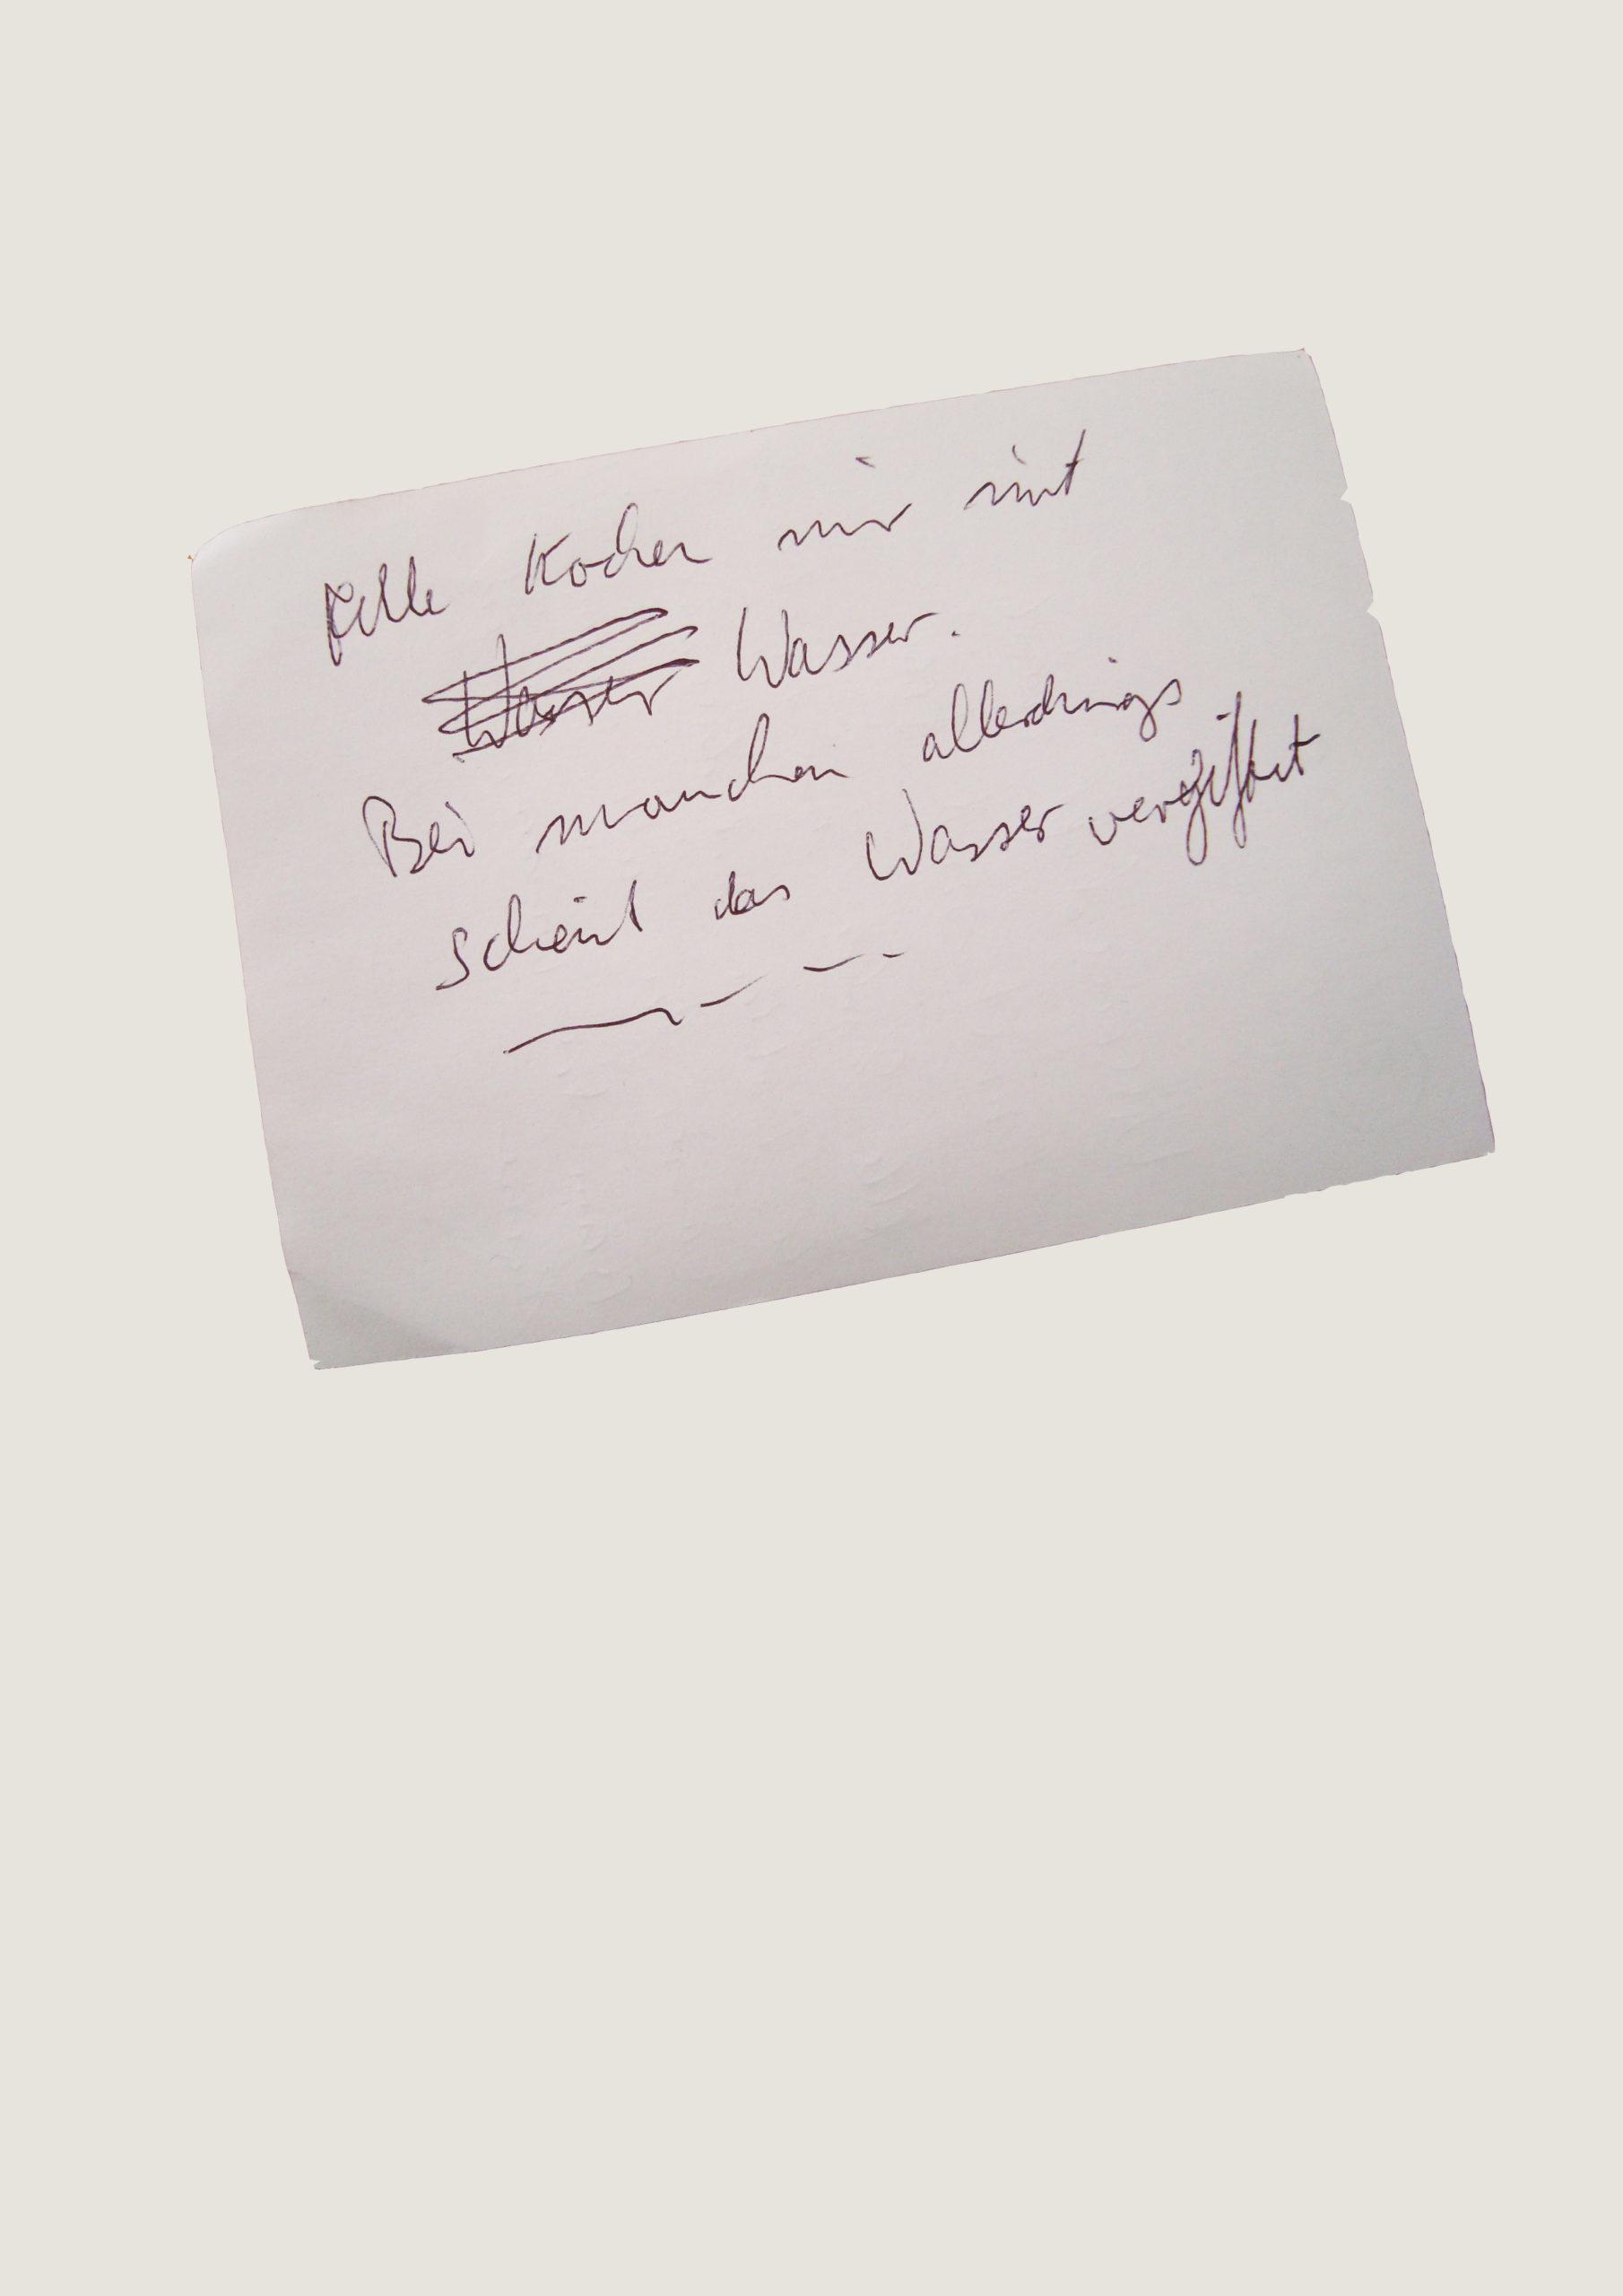 Alle kochen nur mit
Wasser Wasser.
Bei manchen allerdings
scheint das Wasser vergiftet